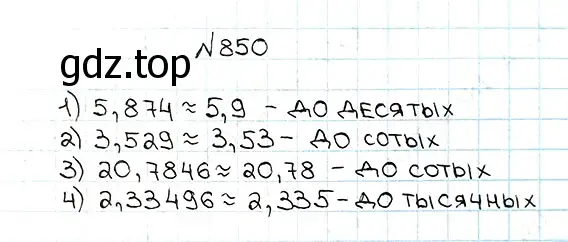 №850
gdz.top
1) 5,874 ≈ 5,9 – до десятых
2) 3,529 ≈ 3,53 – до сотых
3) 20,7846 ≈ 20,78 – до сотых
4) 2,33496 ≈ 2,335 – до тысячных